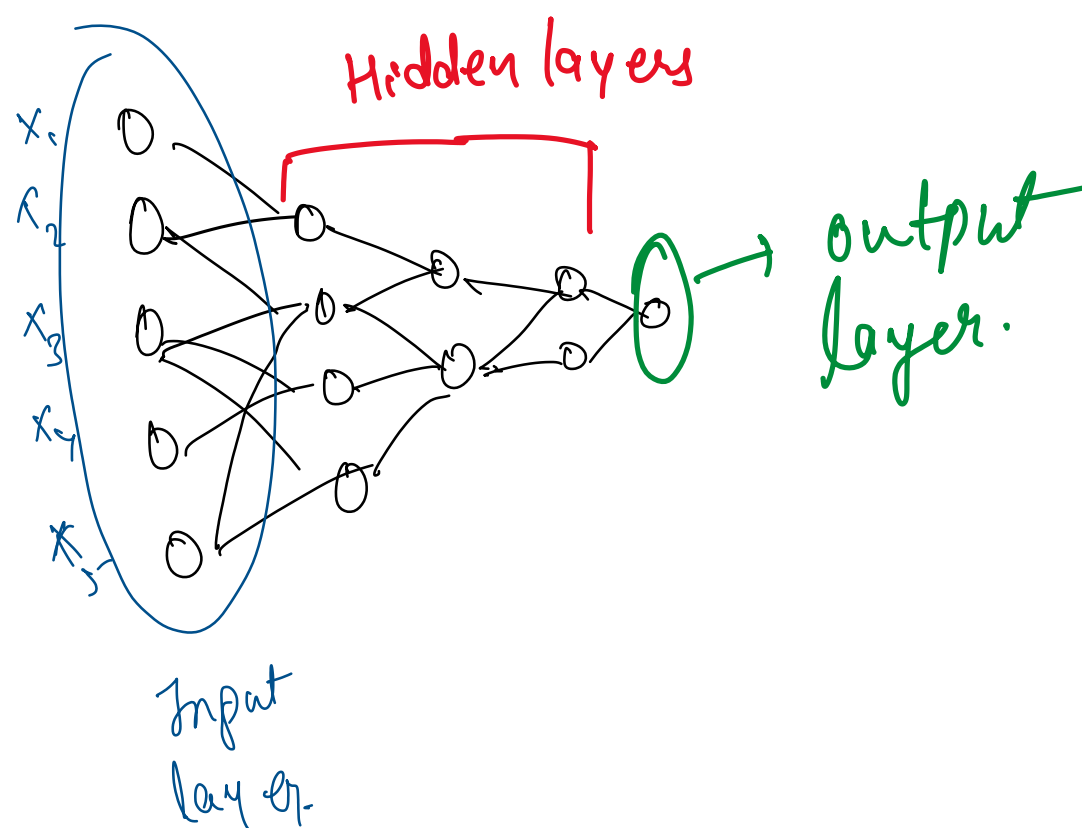 Hidden layers
X1
X2
X3
X4
X5
output
layer.
Input
layer.